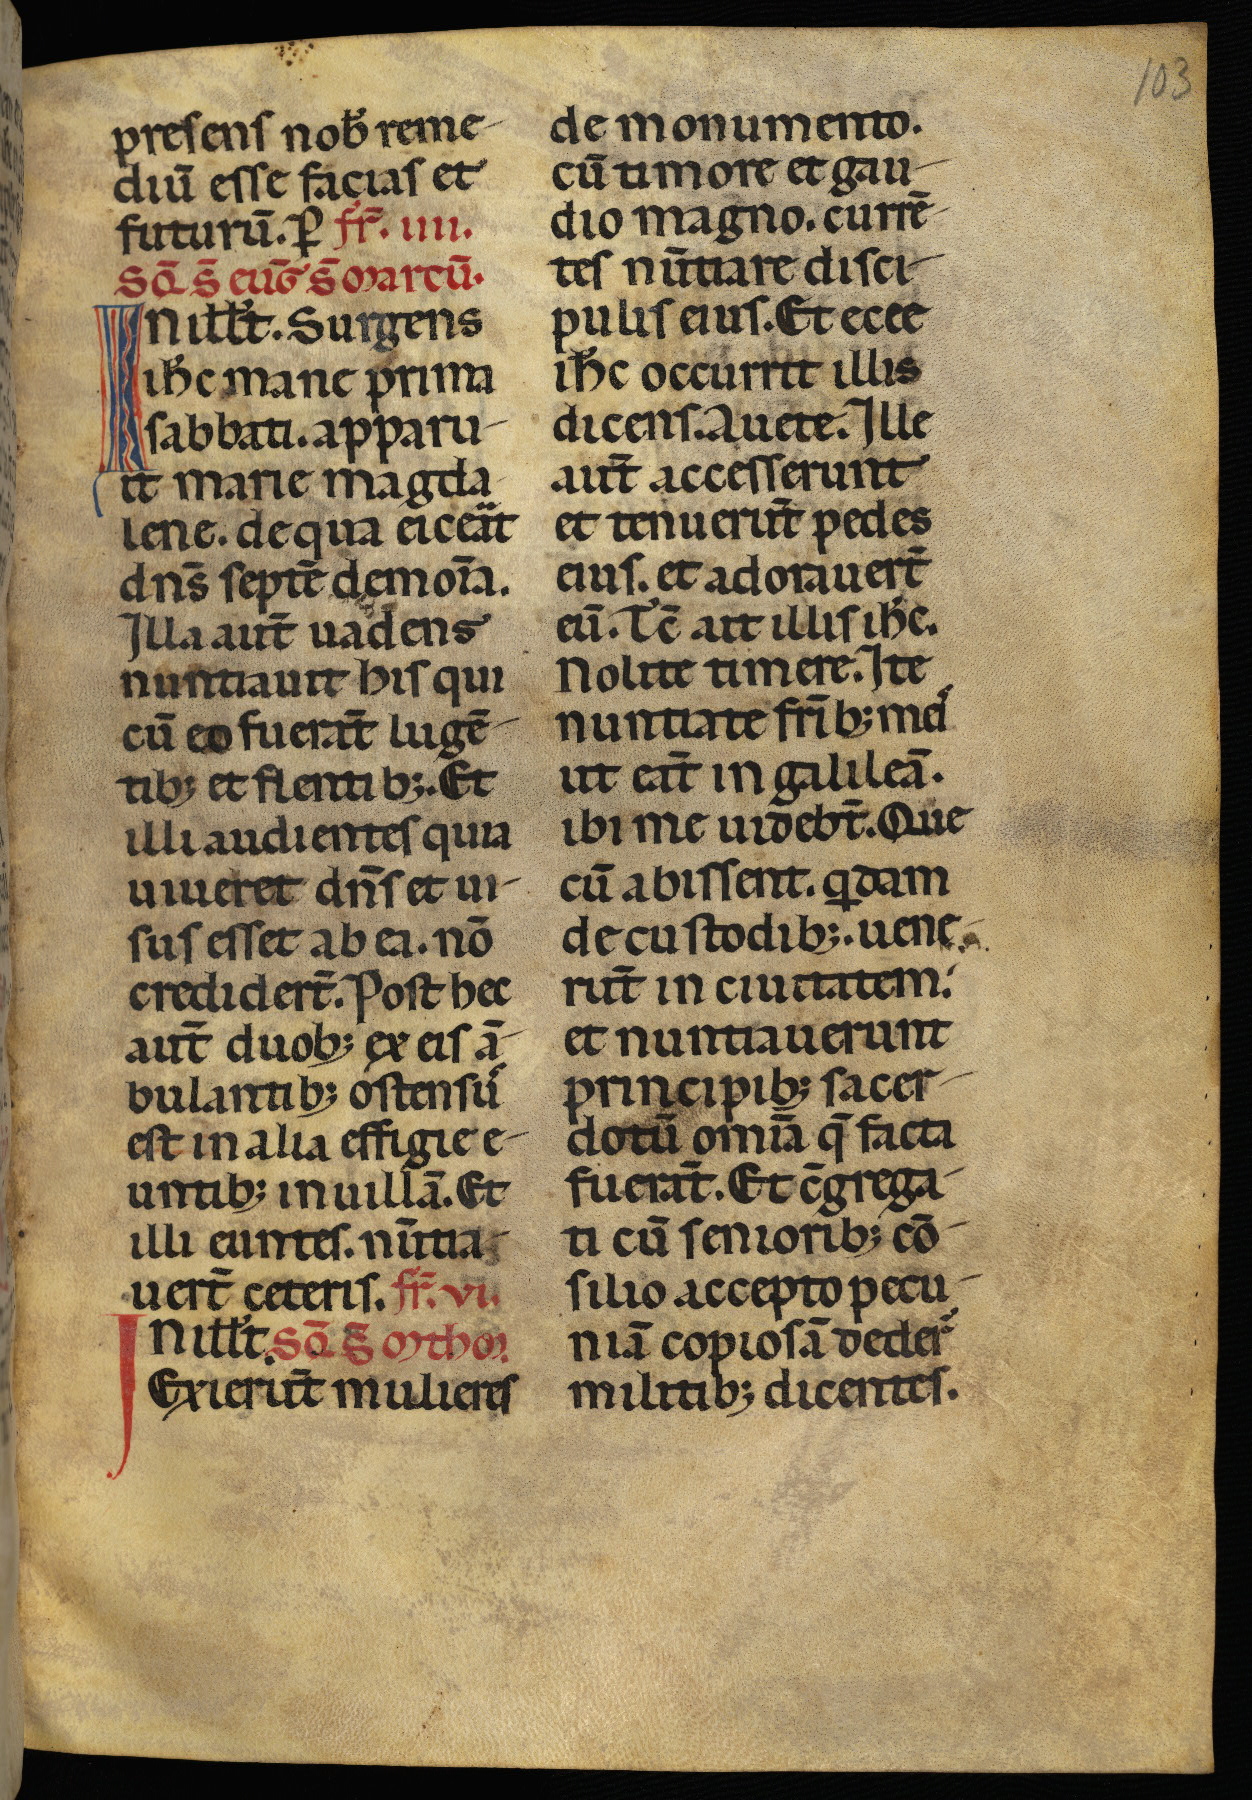 103
presens nob̄ reme-
diū esse facias et
futurū. P̱ fr̄. iiii.
Sq̄. S̄ euḡ S̄ marcū.
INill't. Surgens
ih̄c mane prima
sabbati. apparu-
it marie magda
lene. de qua eiceat̄
dn̄s septē demoīa.
Illa aut̄ uadens
nuntiauit his qui
cū eo fuerat̄ lugē-
tib; et flentib;. Et
illi audientes quia
uiueret dn̄s et ui-
sus esset ab ea. nō
credidert̄. Post hec
aut̄ duob; ex eis ā-
bulantib; ostensu᷒
est in alia effigie e-
untib; in uillā. Et
illi euntes. nūtia-
uert̄ ceteris. fr̄. vi.
INill't. Sq̄ S̄ mthm.
Exierut̄ mulieres
de monumento.
cū timore et gau-
dio magno. currē-
tes nūtiare disci-
pulis eius. Et ecce
ih̄c occurrit illis
dicens. Auete. Ille
aut̄ accesserunt
et tenuerut̄ pedes
eius. et adorauert̄
eū. Tc̄ ait illis ih̄c.
Nolite timere. Ite
nuntiate fr̄ib; mei᷒
ut eat̄ in galileā.
ibi me uidebt̄. Que
cū abissent. qͥdam
de custodib;. uene-
rut̄ in ciuitatem.
et nuntiauerunt
principib; sacer-
dotū omīa q̄ facta
fuerat̄. Et c̄grega-
ti cū seniorib; cō-
silio accepto pecu-
niā copiosā deder᷒
militib; dicentes.